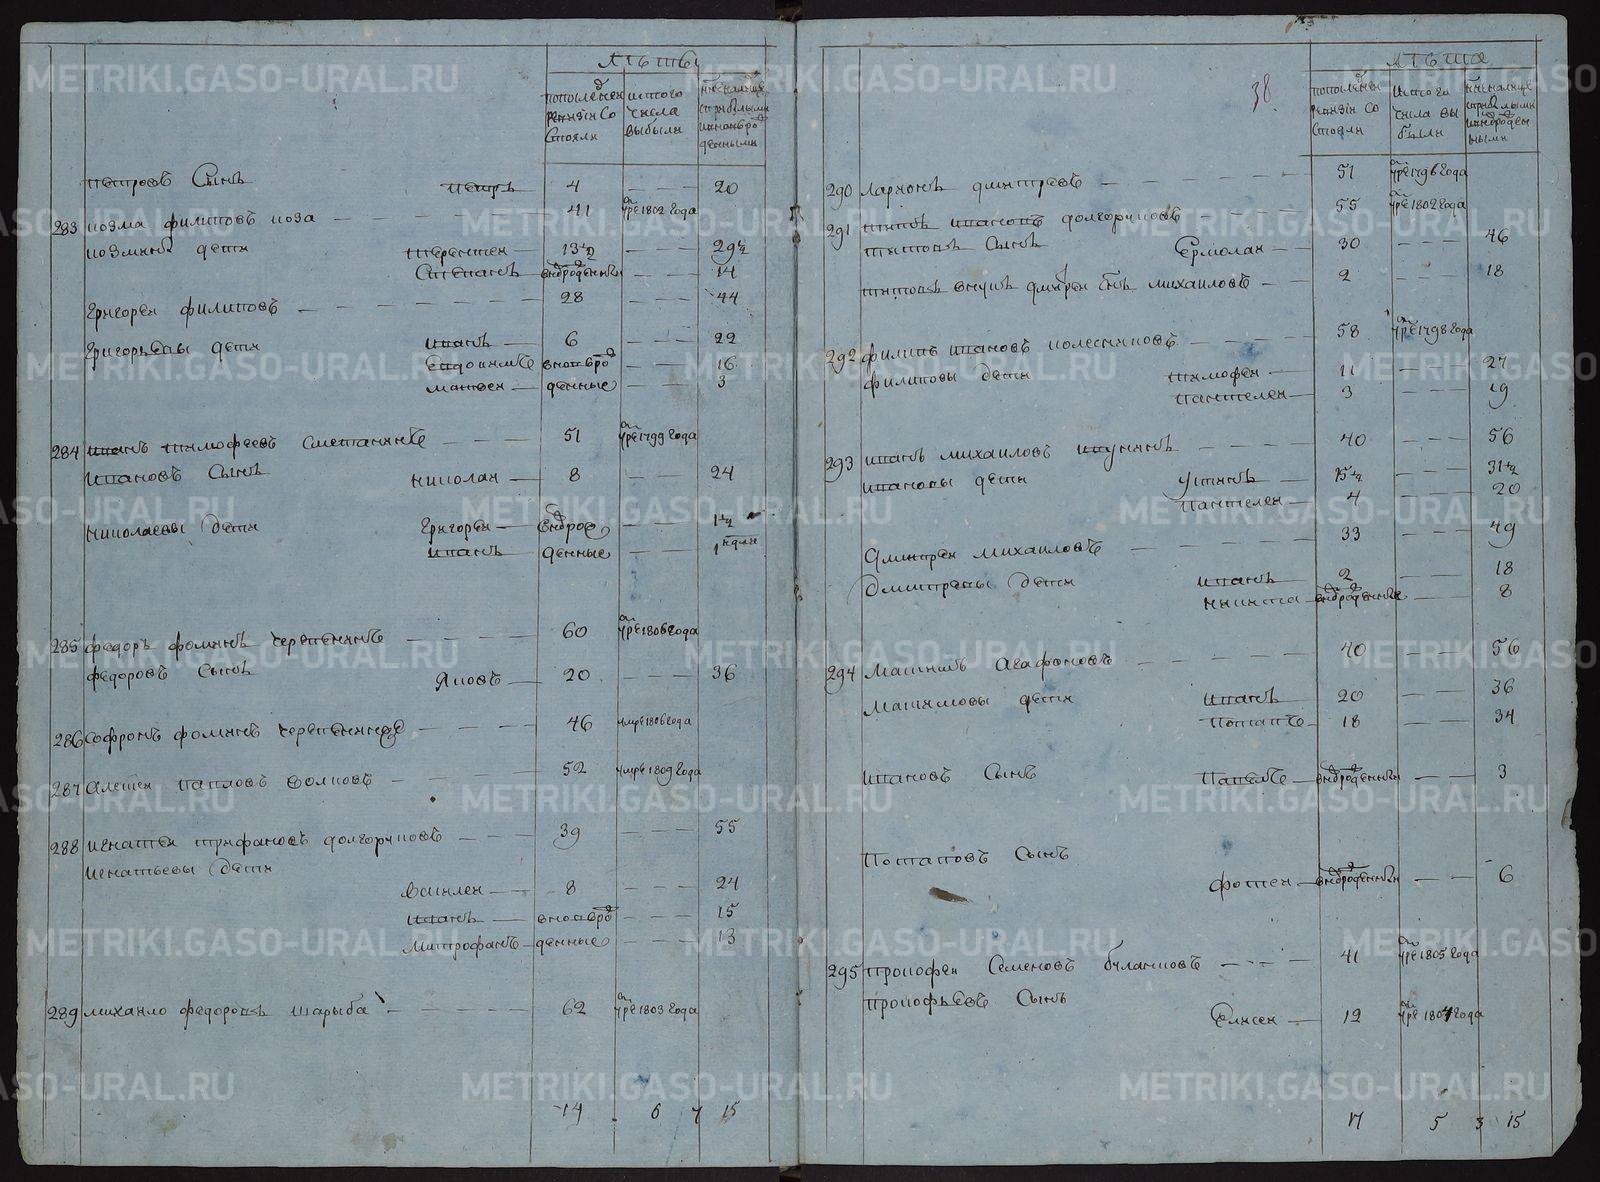 Лѣты
Пополѣднеи ревзіи Состояли
Истого числа выбыли
Нынѣ налице сприбылыми ивновь рожденными
Петровъ Сынъ Петръ 4 — — — 20
283 Козма филиповъ коза — — — — 41 умре 1802 года
Козмины дети Терентеи — 13½ — — — 29½
Степанъ внврожденныи — — — 14
Григореи филиповъ — — — — 28 — — — 44
Григорьевы дети Иванъ — 6 — — — 22
Евдокимъ вновьро — — — 16
Матвеи — денные — — — 3
284 Иванъ тимофеевъ сметанинъ — — — 51 умре 1799 года
Ивановъ Сынъ николаи — 8 — — 24
николаевы Дети Григореи — внврож — — — 1½
Иванъ — денные — — — 1 недли
285 федоръ фоминъ черепенинъ — — — — 60 умре 1806 года
федоровъ Сынъ Яковъ — 20 — — — 36
286 Софронъ фоминъ черепенинъ — — — — 46 умре 1806 года
287 Алексеи павловъ волковъ — — — — 52 умре 1809 года
288 игнатеи трифановъ долгоруковъ — — 39 — — — 55
Игнатьевы Дети
Василеи — 8 — — — 24
Иванъ — вновьрож — — — 15
Митрофанъ — денные — — — 13
289 михаило федоровъ шарыба — — — — 62 умре 1803 года
14 6 7 15
38
Лѣта
Пополѣднеи ревзіи Состояли
Истого числа выбыли
Нынѣ налице сприбылыми ивновьрожденными
290 Ларионъ дмитревъ — — — — 51 умре 1796 года
291 титъ ивановъ долгоруковъ — — — 55 умре 1802 года
титовъ Сынъ Ермолаи — 30 — — — 46
титовъ внукъ андреи снъ михаиловъ — — 2 — — — 18
292 филипъ ивановъ колесниковъ — — — 58 умре 1798 года
филиповы дети тимофеи — 11 — — — 27
пантелеи — 3 — — — 19
293 иванъ михаиловъ икунинъ — — — 40 — — — 56
Ивановы дети Устинъ — 15½ — — — 31½
Пантелеи — 4 — — — 20
Дмитреи михаиловъ — — — — 33 — — — 49
Дмитревы Дети Иванъ — 2 — — — 18
никита — внврожденныи — — 8
294 Максимъ Агафоновъ — — — — 40 — — — 56
Максимовы дети Иванъ — 20 — — 36
Потапъ — 18 — — 34
Ивановъ Сынъ Павелъ — внврожденныи — — 3
Потаповъ Сынъ
фотеи — внврожденныи — — 6
295 прокофеи Семеновъ булаковъ — — — 41 умре 1805 года
прокофьевъ Сынъ
Елисеи — 12 умре 1804 года
17 5 3 15